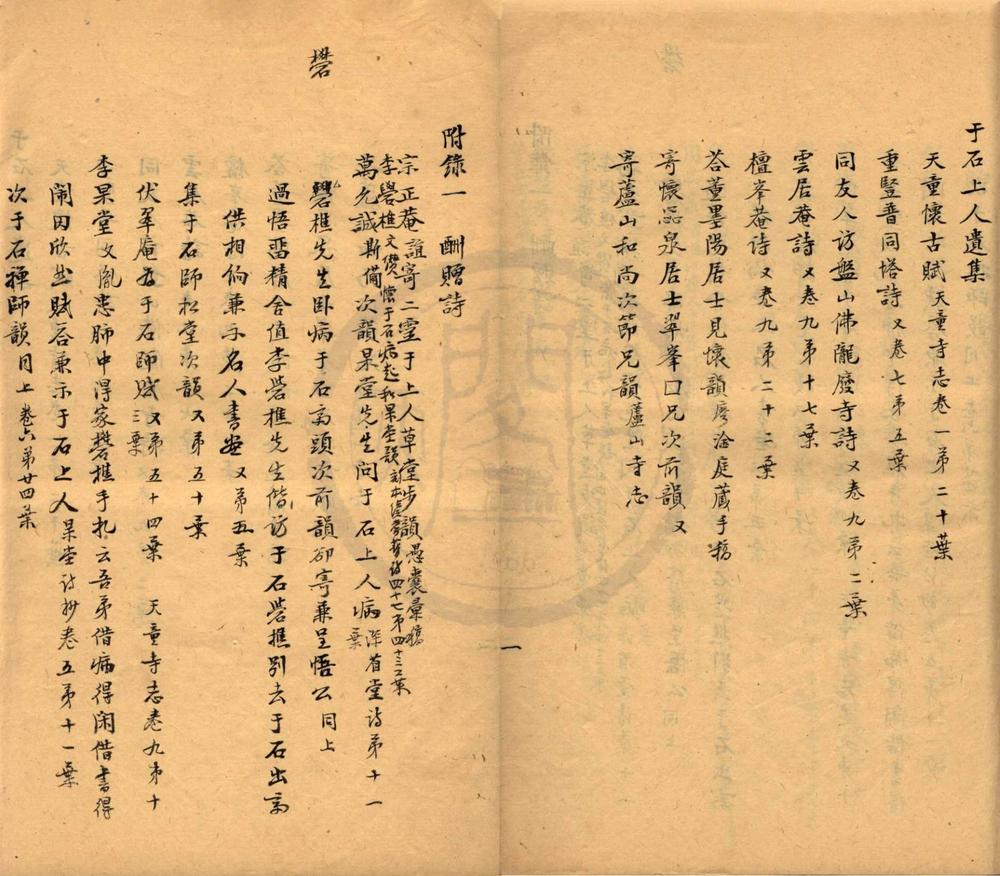 于石上人遺集
天童懷古賦 天童寺志卷一第二十葉
重豎普同塔詩 又卷七第五葉
同友人访盤山佛隴廢寺詩 又卷九第二葉
雲居菴詩 又卷九第十七葉
檀峯菴诗 又卷九第二十二葉
荅董墨陽居士見懷韻 庭藏手稿
寄懷泉居士翠峯口兄次前韻 又
寄蘆山和尚次節兄韻 蘆山寺志
礬
附錄一 酬贈詩
宗正菴誼寄二靈于上人草堂步韻 愚囊彙稿
李礐樵文懷于石病起和杲堂韻 四十七第四十三葉
萬允誠斯備次韻杲堂先生问于石上人病 深省堂诗第十一葉
礐樵先生卧病于石斋頭次前韻卻寄兼呈悟公 同上
過悟畱精舍值李礐樵先生偕访于石礐樵别去于石出斋
供相餉兼示名人書 又第五葉
集于石師松堂次韻 又第五十葉
同伏翠庵于石師赋 又第五十四葉 天童寺志卷九第十三葉
李杲堂文胤患肺中得家礬樵手札云吾弟借病得闲借書得
闹因欣然赋荅兼示于石上人 杲堂诗抄卷五第十一葉
次于石禪師韻 同上卷六第廿四葉